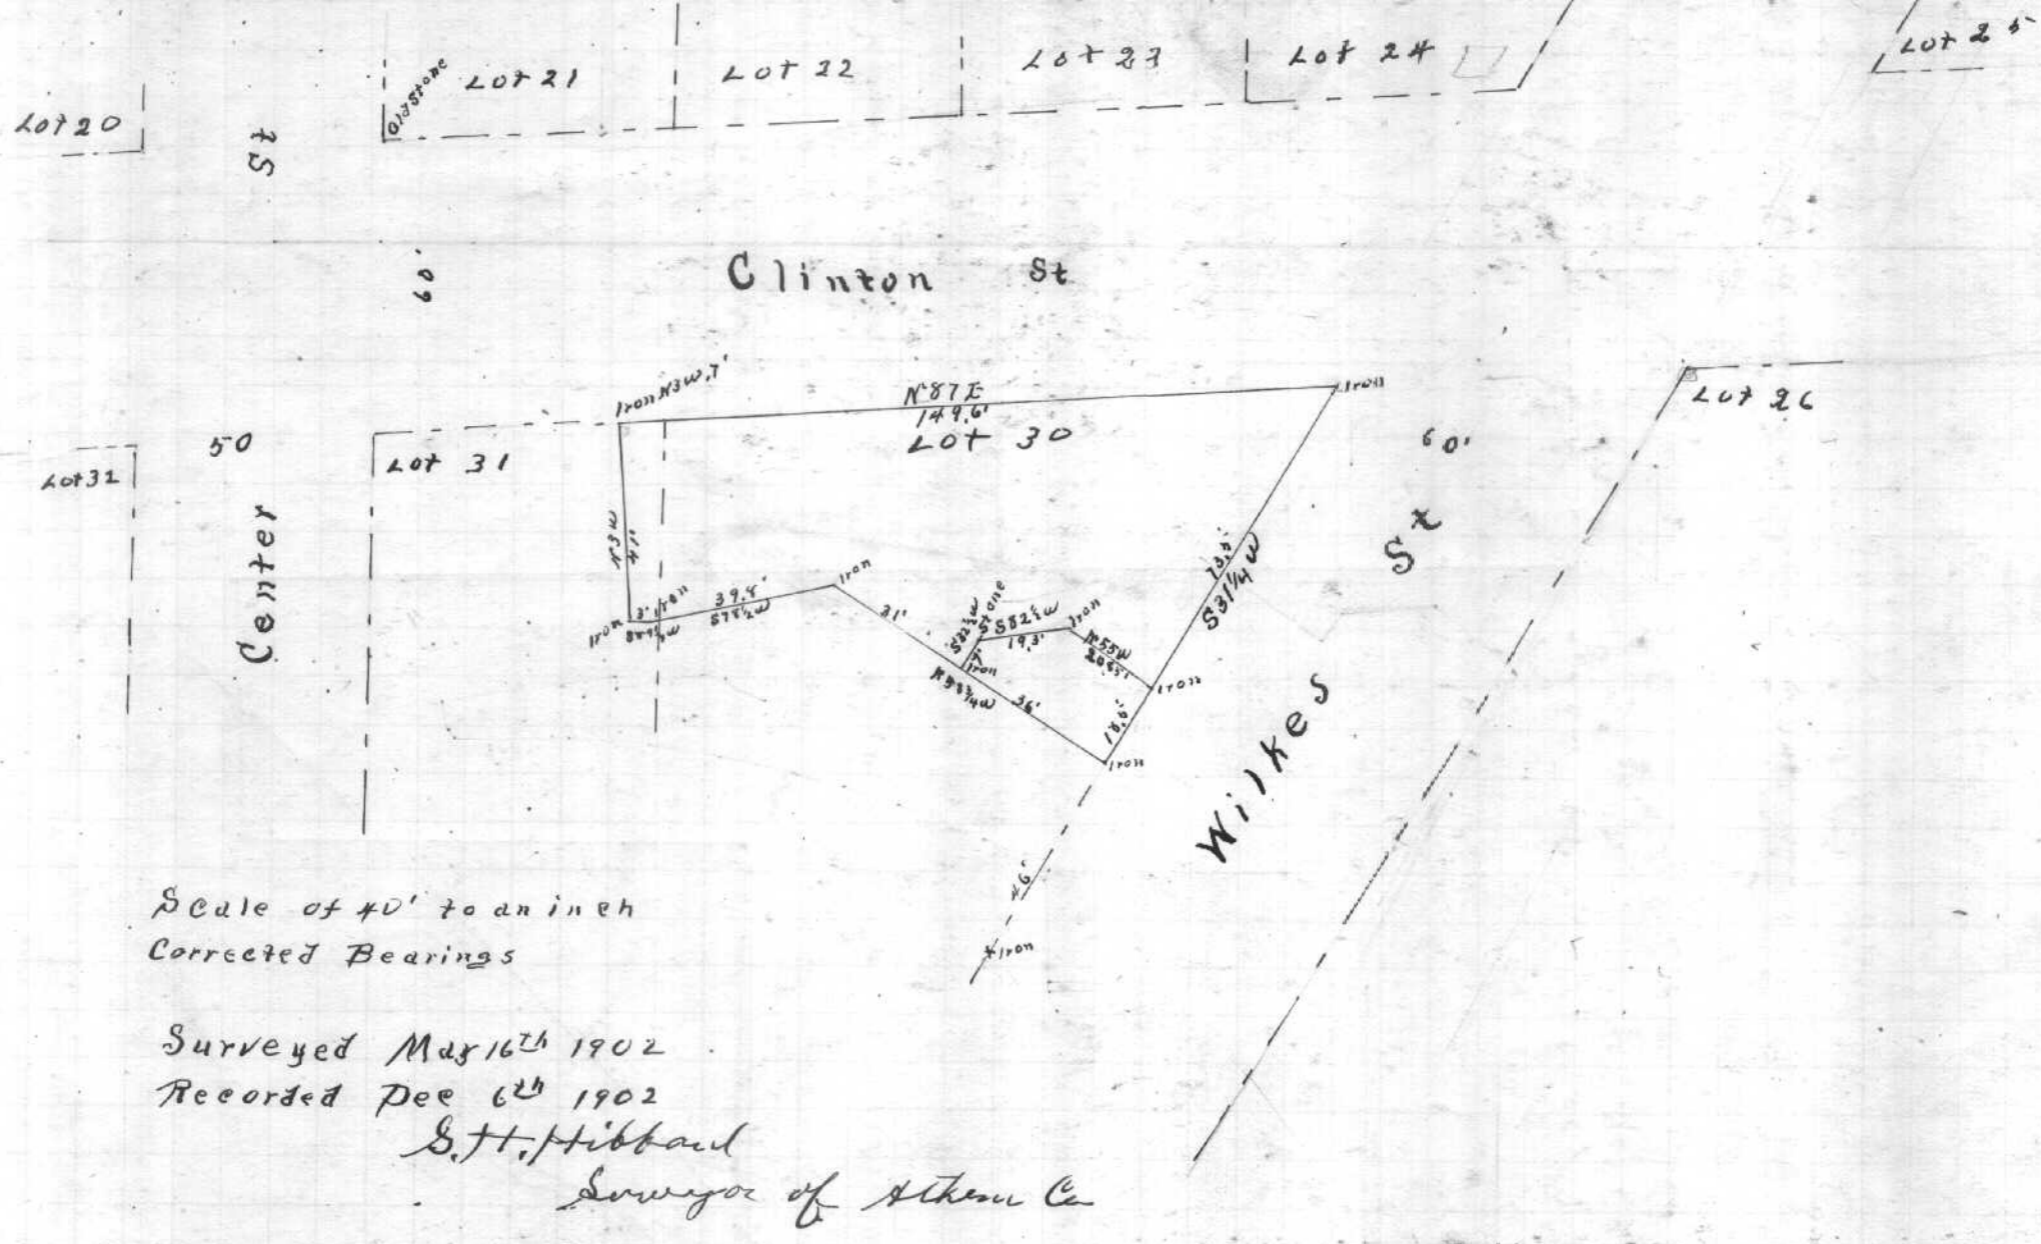 Lot 20
Old Stone
Lot 21
Lot 22
Lot 23
Lot 24
Lot 25
Center St
60'
Clinton St
Iron N3W.7'
N87E
149.6'
Lot 30
Iron
Lot 26
60'
Lot 32
50
Lot 31
N3W
41'
Iron
3'
Iron
39.8'
S78½W
Iron
31'
Stone
S82½W
19.3'
Iron
7'
Iron
N55W
Iron
S31¼W
36'
Iron
Wilkes St
46'
Iron
Scale of 40' to an inch
Corrected Bearings
Surveyed May 16th 1902
Recorded Dec 6th 1902
G.H. Hibbard
Surveyor of Athens Co